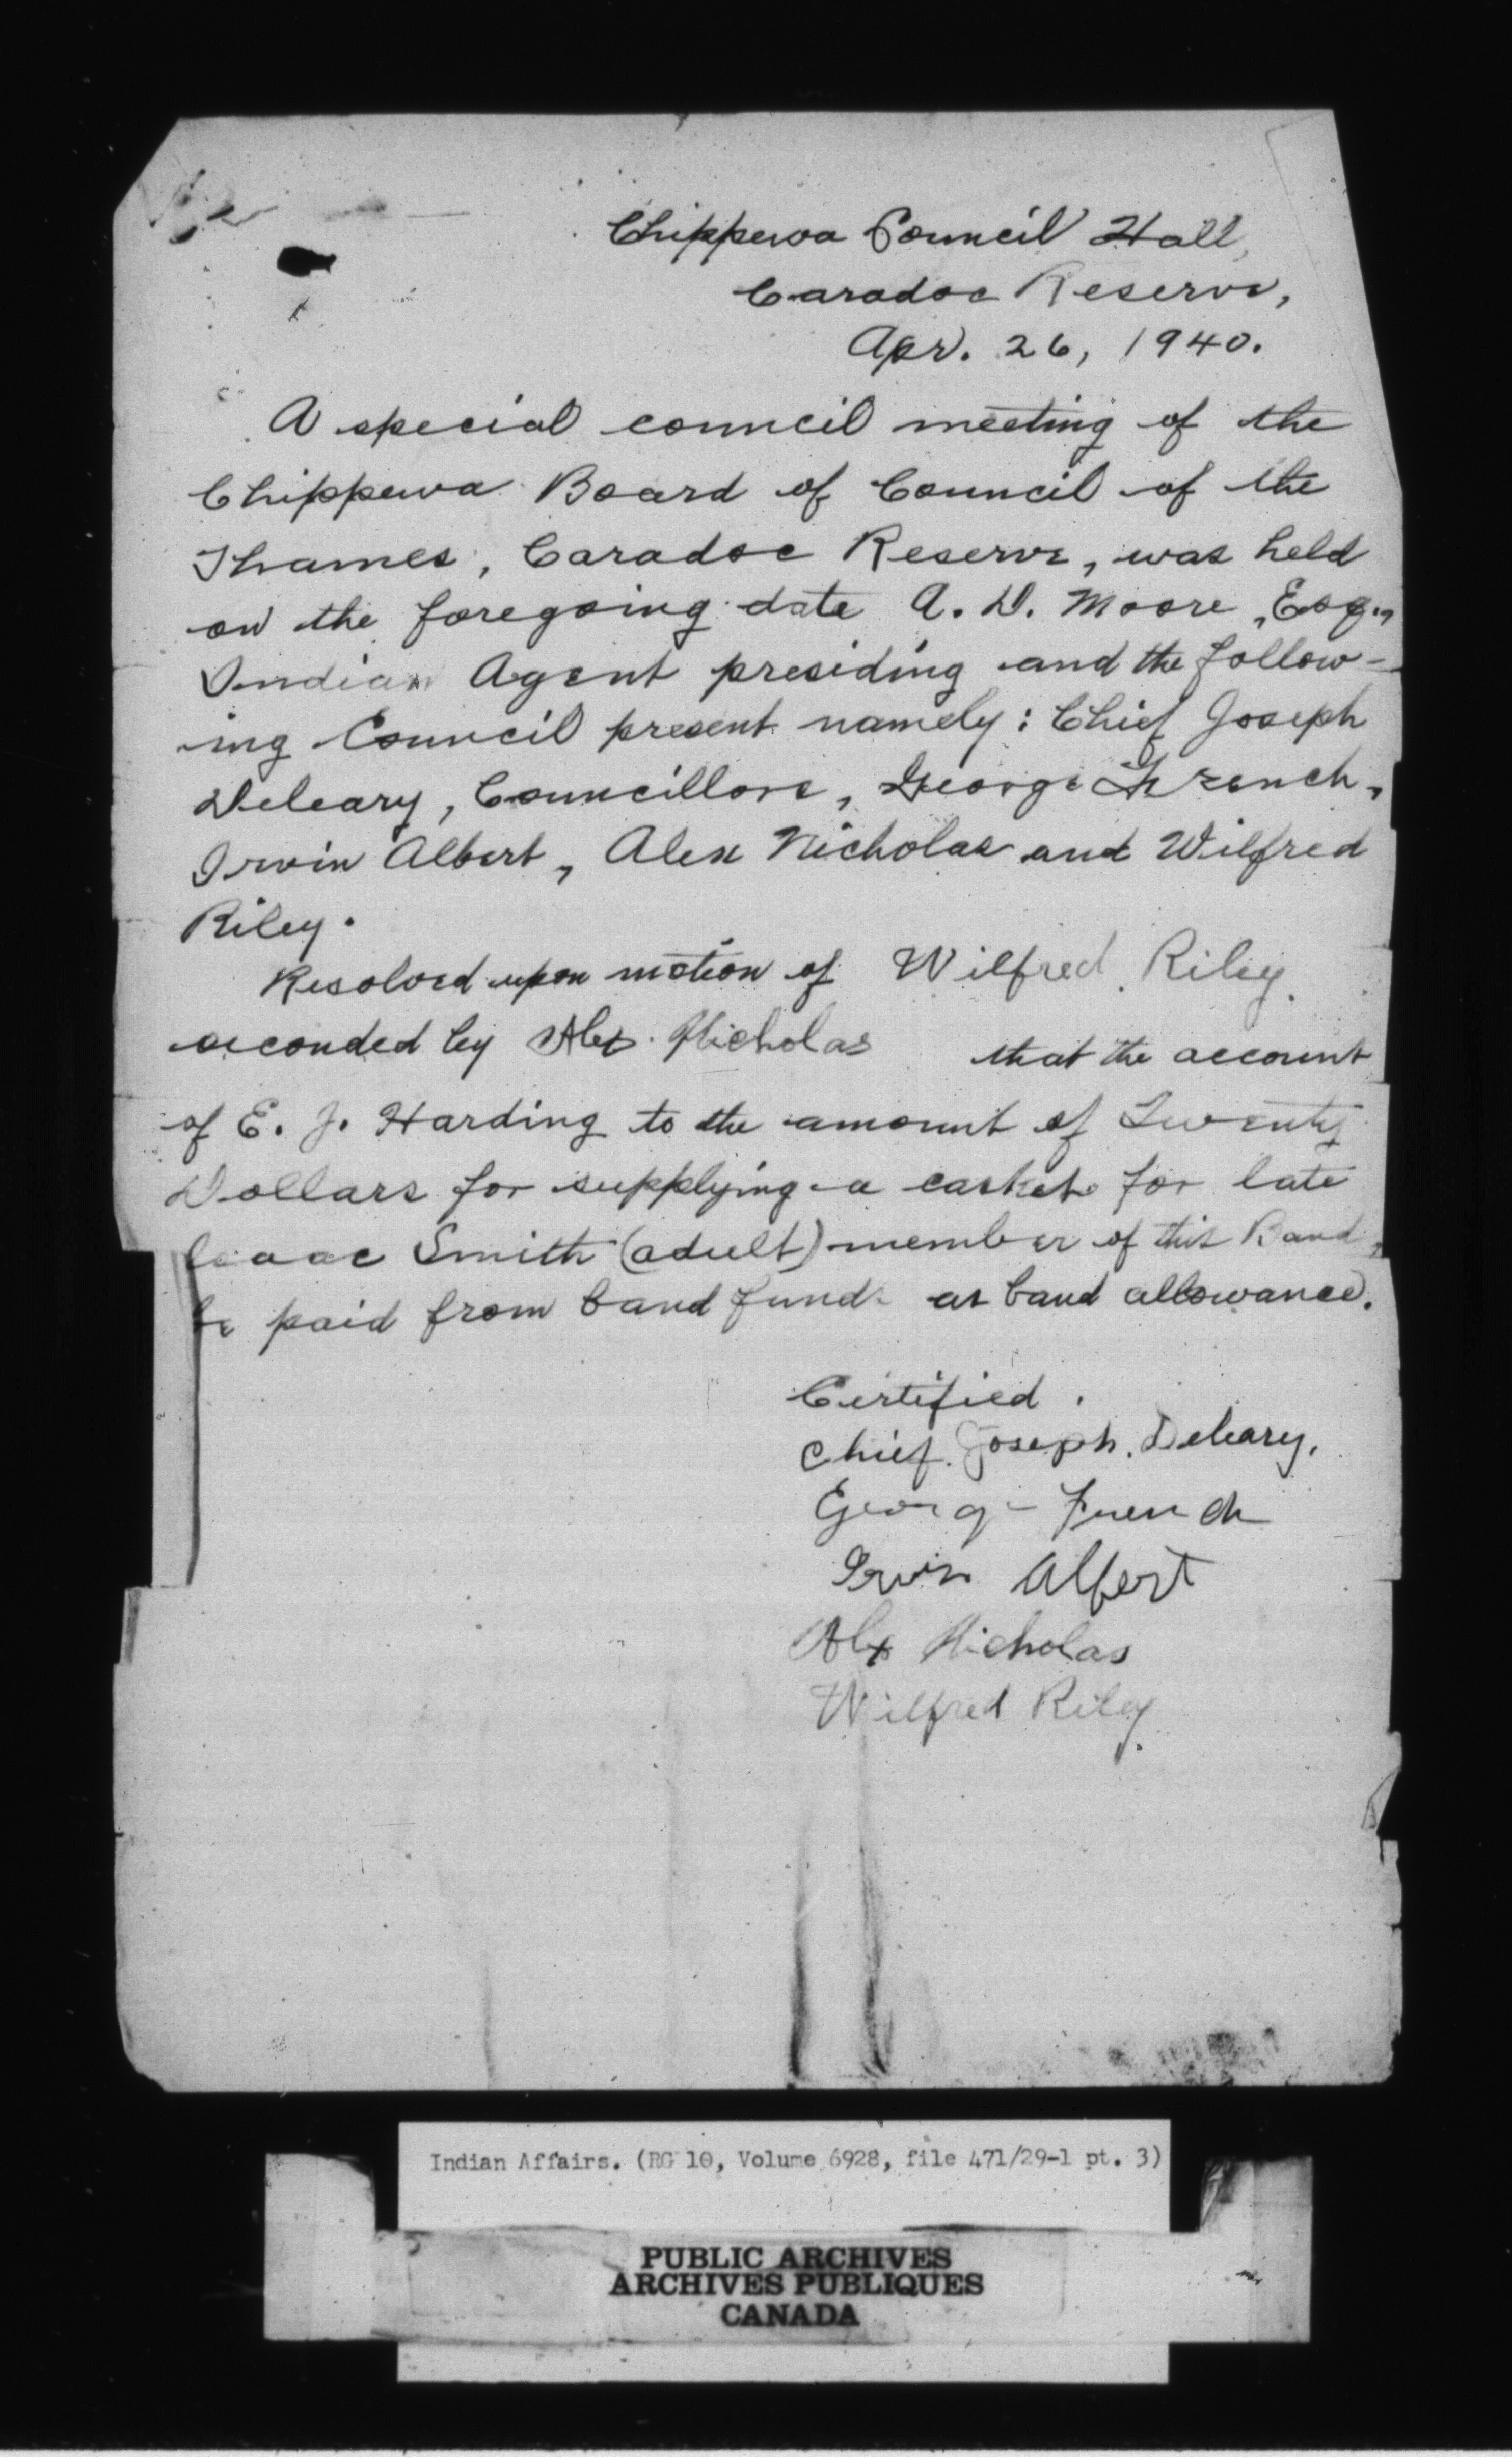 Chippewa Council Hall,
Caradoc Reserve,
Apr. 26, 1940.
A special council meeting of the
Chippewa Board of Council of the
Thames, Caradoc Reserve, was held
on the foregoing date A. D. Moore, Esq.,
Indian Agent presiding and the follow-
ing Council present namely: Chief Joseph
Deleary, Councillors, George French,
Irwin Albert, Alex Nicholas and Wilfred
Riley.
Resolved upon motion of Wilfred Riley
seconded by Alex Nicholas that the account
of E. J. Harding to the amount of Twenty
Dollars for supplying a casket for late
Isaac Smith (adult) member of this Band,
be paid from band funds as band allowance.
Certified.
Chief. Joseph. Deleary,
George French
Irvin Albert
Alex Nicholas
Wilfred Riley
Indian Affairs. (RG 10, Volume 6928, file 471/29-1 pt. 3)
PUBLIC ARCHIVES
ARCHIVES PUBLIQUES
CANADA